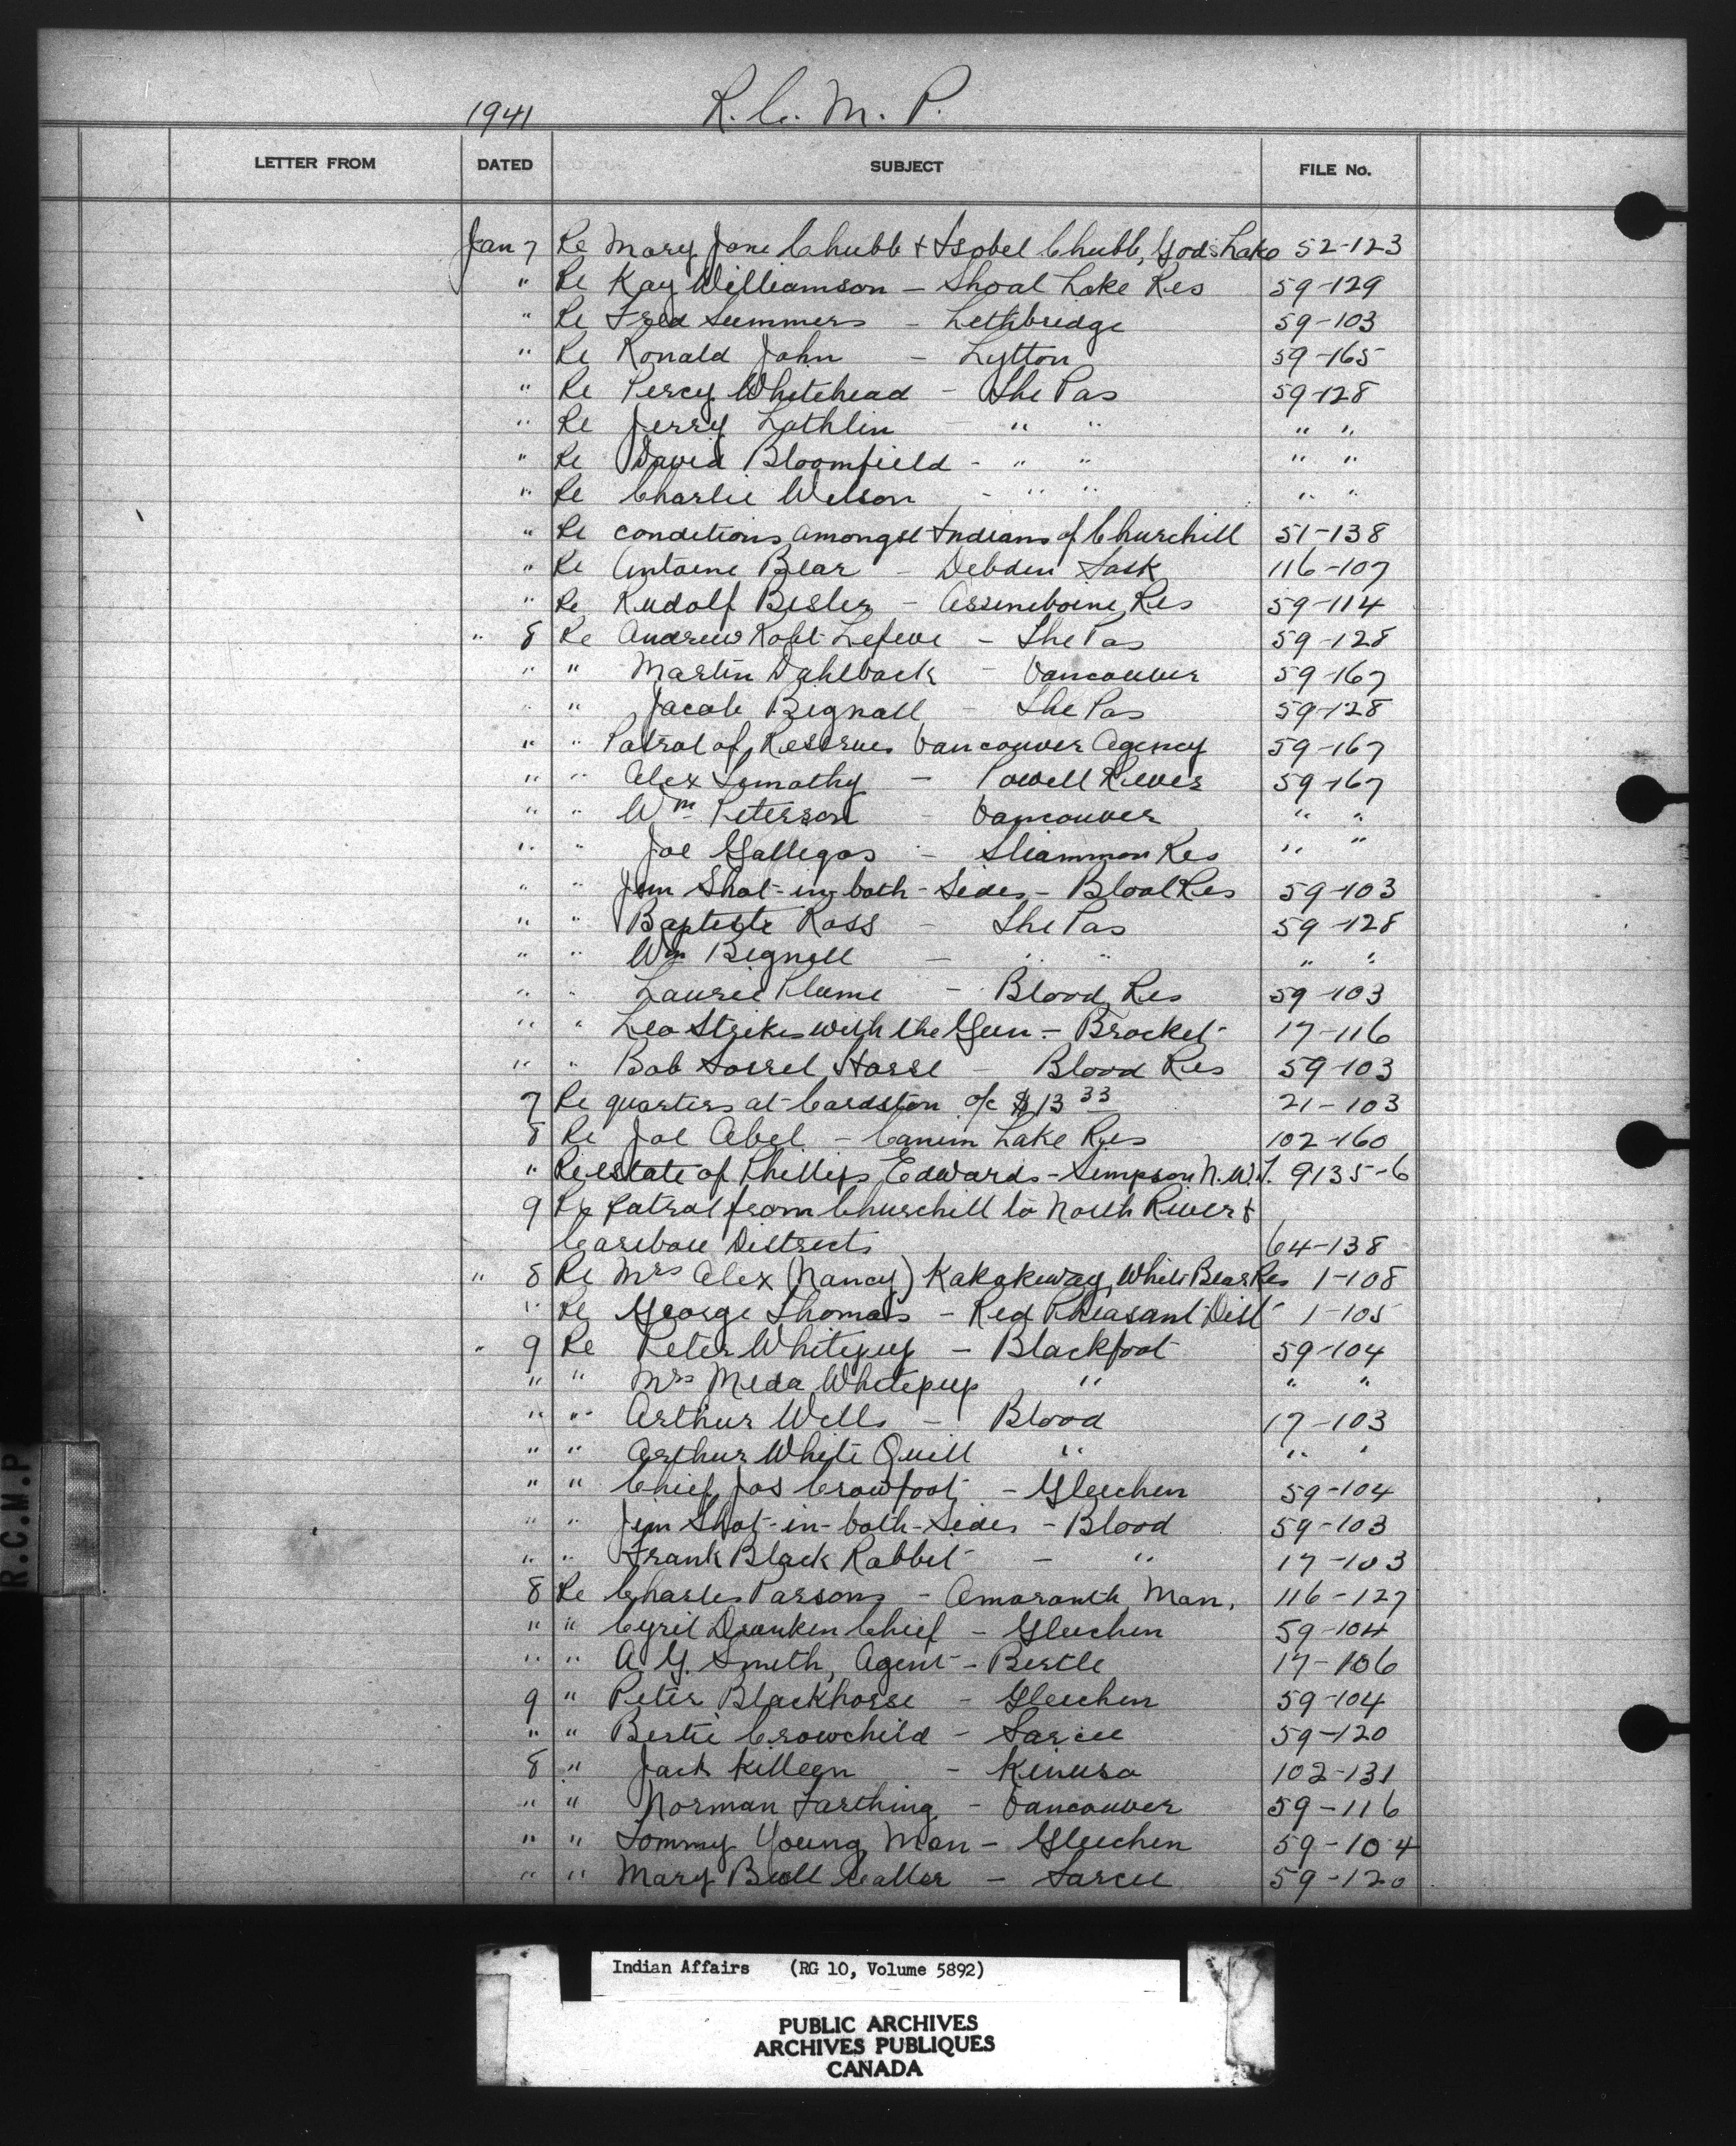 1941 R. C. M. P.
LETTER FROM DATED SUBJECT FILE No.
Jan 7 Re Mary Jane Chubb & Isobel Chubb, Gods Lake 52-123
" Re Kay Williamson - Shoal Lake Res 59-129
" Re Fred Summers - Lethbridge 59-103
" Re Ronald John - Lytton 59-165
" Re Percy Whitehead - The Pas 59-128
" Re Jerry Lathlin - " " " "
" Re David Bloomfield - " " " "
" Re Charlie Wilson - " " " "
" Re conditions amongst Indians of Churchill 51-138
" Re Antoine Bear - Debden Sask 116-107
" Re Rudolf Besler - Assiniboine Res 59-114
" 8 Re Andrew Robt Lefeve - The Pas 59-128
" " Martin Dahlback - Vancouver 59-167
" " Jacob Bignall - The Pas 59-128
" " Patrol of Reserves Vancouver Agency 59-167
" " Alex Timothy - Powell River 59-167
" " Wm Peterson - Vancouver " "
" " Joe Gallegos - Sliammon Res " "
" " Jim Shot-in-both-Sides - Blood Res 59-103
" " Baptiste Ross - The Pas 59-128
" " Wm Bignell - " " " "
" " Laurie Plume - Blood Res 59-103
" " Leo Strikes with the Gun - Brocket 17-116
" " Bob Sorrel Horse - Blood Res 59-103
7 Re quarters at Cardston o/c $13 33 21-103
8 Re Joe Abel - Canim Lake Res 102-160
" Re estate of Phillips Edwards - Simpson N.W.T. 9135-6
9 Re Patrol from Churchill to North River &
Caribou Districts 64-138
" 8 Re Mrs Alex (Nancy) Kakakeway, White Bear Res 1-108
" Re George Thomas - Red Pheasant Dist 1-105
" 9 Re Peter Whitepup - Blackfoot 59-104
" " Mrs Meda Whitepup " " "
" " Arthur Wells - Blood 17-103
" " Arthur White Quill " " "
" " Chief Jos Crowfoot - Gleichen 59-104
" " Jim Shot-in-both-Sides - Blood 59-103
" " Frank Black Rabbit - " 17-103
8 Re Charles Parsons - Amaranth, Man. 116-127
" " Cyril Drunken Chief - Gleichen 59-104
" " A. G. Smith, Agent - Birtle 17-106
9 " Peter Blackhorse - Gleichen 59-104
" " Bertie Crowchild - Sarcee 59-120
8 " Jack Killeen - Kinuso 102-131
" " Norman Farthing - Vancouver 59-116
" " Tommy Young Man - Gleichen 59-104
" " Mary Bull Caller - Sarcee 59-120
R.C.M.P
Indian Affairs (RG 10, Volume 5892)
PUBLIC ARCHIVES
ARCHIVES PUBLIQUES
CANADA